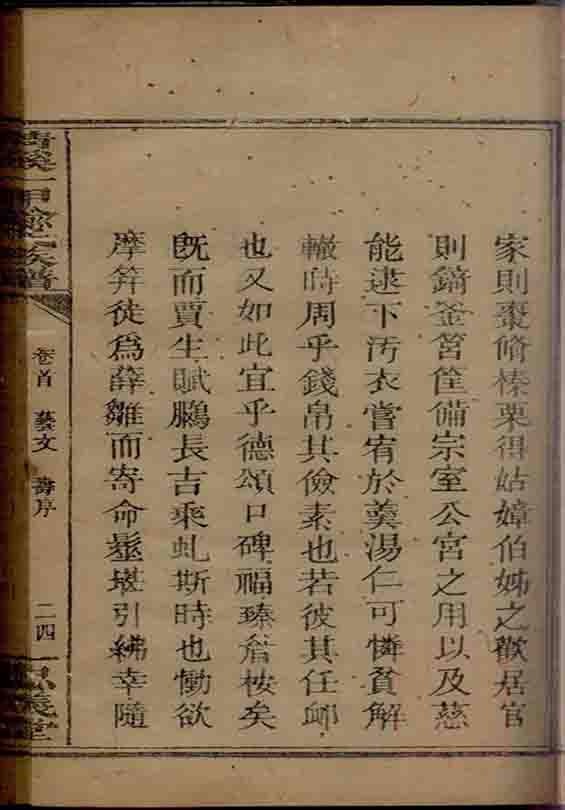 家則棗脩榛栗得姑嫜伯姊之歡居官
則錡釜筥筐備宗室公宮之用以及慈
能逮下汚衣嘗宥於羹湯仁可憐貧解
轍時周乎錢帛其儉素也若彼其任卹
也又如此宜乎德頌口碑福臻詹桉矣
旣而賈生賦鵩長吉乘虬斯時也慟欲
摩笄徒爲薛雛而寄命髽堪引紼幸隨
清溪一甲
族譜
卷首 藝文 壽序
二四
堂